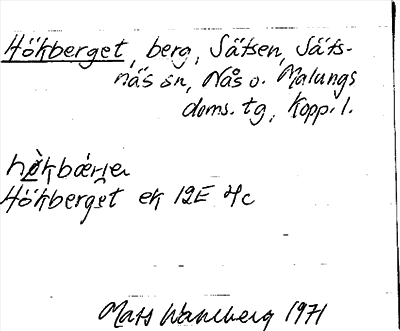 Hökberget, berg, Sätsen, Säfs-
näs sn, Nås o. Malungs
doms. tg, Kopp. l.
Hökberget ek 12E 4c
Mats Wahlberg 1971